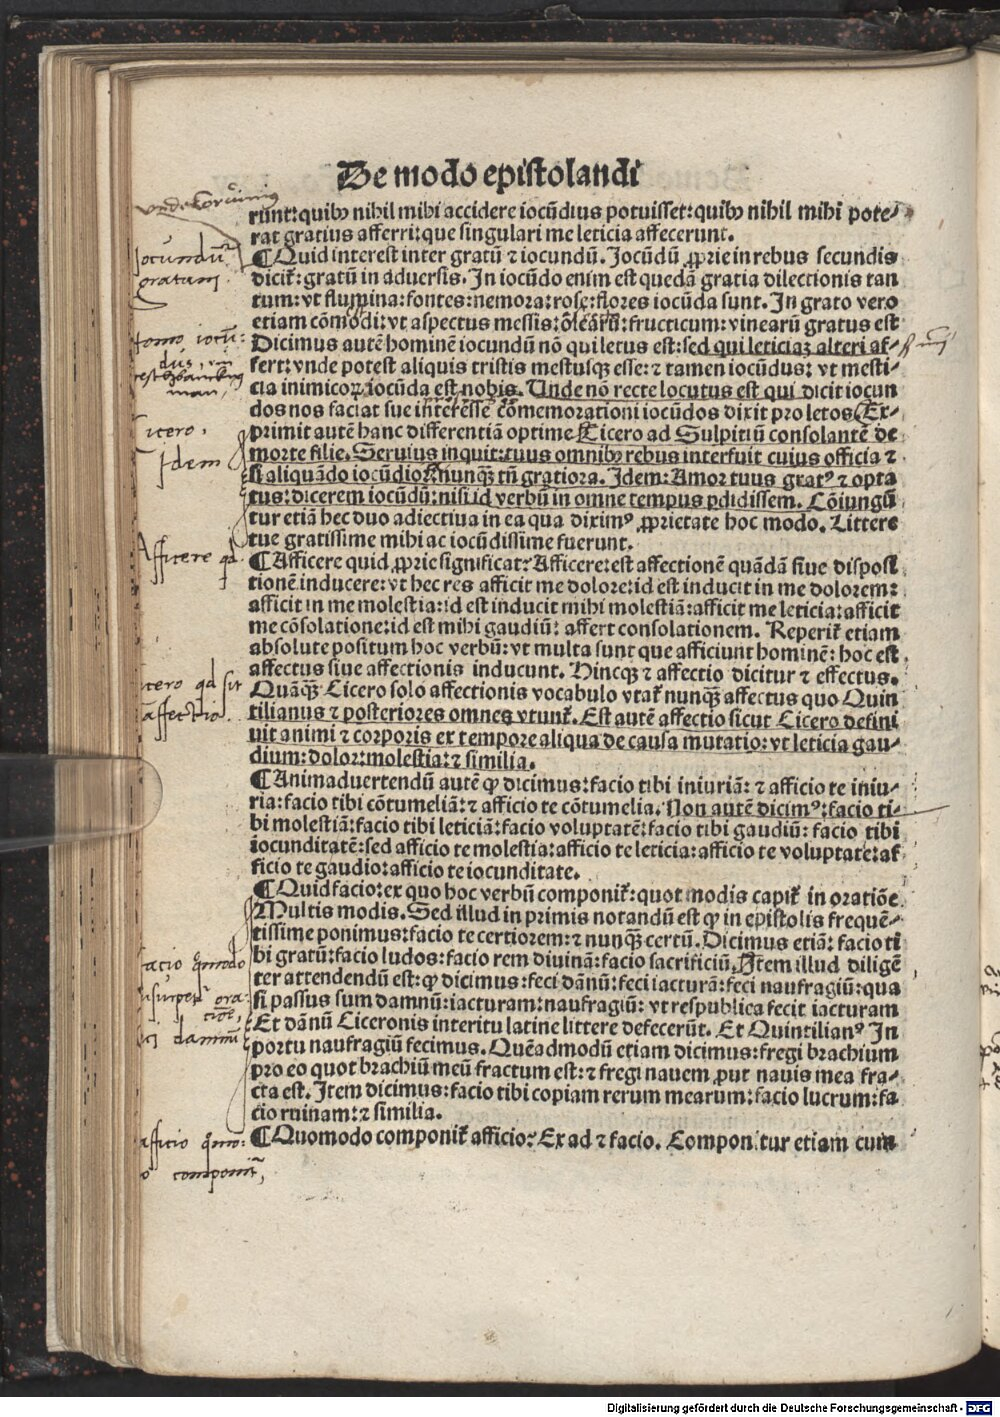 De modo epistolandi
runt: quibꝰ nihil mihi accidere iocũdius potuisset: quibꝰ nihil mihi pote⸗
rat gratius afferri: que singulari me leticia affecerunt.
¶ Quid interest inter gratũ ⁊ iocundũ. Jocũdũ ꝓprie in rebus secundis
dicit̃: gratũ in aduersis. In iocũdo enim est quedã gratia dilectionis tan
tum: vt flumina: fontes: nemora: rose: flores iocũda sunt. In grato vero
etiam cõmodi: vt aspectus messis: olearũ: fructicum: vinearũ gratus est
Dicimus autẽ hominẽ iocundũ nõ qui letus est: sed qui leticiaꝫ alteri af⸗
fert: vnde potest aliquis tristis mestusqꝫ esse: ⁊ tamen iocũdus: vt mesti⸗
cia inimicoꝝ iocũda est nobis. Unde nõ recte locutus est qui dicit iocun
dos nos faciat sue interesse cõmemorationi iocũdos dixit pro letos. Ex⸗
primit autẽ hanc differentiã optime Cicero ad Sulpitiũ consolantẽ de
morte filie. Seruius inquit: tuus omnibꝰ rebus interfuit cuius officia ⁊
si aliquãdo iocũdiora nunqꝫ̃ tñ gratiora. Idem: Amor tuus gratꝰ ⁊ opta
tus: dicerem iocũdũ: nisi id verbũ in omne tempus ꝑdidissem. Cõiungũ
tur etiã hec duo adiectiua in ea qua diximꝰ ꝓprietate hoc modo. Littere
tue gratissime mihi ac iocũdissime fuerunt.
¶ Afficere quid ꝓprie significat? Afficere: est affectionẽ quãdã siue disposi
tionẽ inducere: vt hec res afficit me dolore: id est inducit in me dolorem:
afficit in me molestia: id est inducit mihi molestiã: afficit me leticia: afficit
me cõsolatione: id est mihi gaudiũ: affert consolationem. Reperit̃ etiam
absolute positum hoc verbũ: vt multa sunt que afficiunt hominẽ: hoc est
affectus siue affectionis inducunt. Hincqꝫ ⁊ affectio dicitur ⁊ effectus.
Quãqꝫ̃ Cicero solo affectionis vocabulo vtat̃ nunqꝫ̃ affectus quo Quin
tilianus ⁊ posteriores omnes vtunt̃. Est autẽ affectio sicut Cicero defini
uit animi ⁊ corporis ex tempore aliqua de causa mutatio: vt leticia gau⸗
dium: dolor: molestia: ⁊ similia.
¶ Animaduertendũ autẽ ꝙ dicimus: facio tibi iniuriã: ⁊ afficio te iniu⸗
ria: facio tibi cõtumeliã: ⁊ afficio te cõtumelia. Non autẽ dicimꝰ: facio ti⸗
bi molestiã: facio tibi leticiã: facio voluptatẽ: facio tibi gaudiũ: facio tibi
iocunditatẽ: sed afficio te molestia: afficio te leticia: afficio te voluptate: af
ficio te gaudio: afficio te iocunditate.
¶ Quid facio: ex quo hoc verbũ componit̃: quot modis capit̃ in oratiõe
Multis modis. Sed illud in primis notandũ est ꝙ in epistolis frequẽ⸗
tissime ponimus: facio te certiorem: ⁊ nunqꝫ̃ certũ. Dicimus etiã: facio ti
bi gratũ: facio ludos: facio rem diuinã: facio sacrificiũ. Item illud diligẽ
ter attendendũ est: ꝙ dicimus: feci dãnũ: feci iacturã: feci naufragiũ: qua
si passus sum damnũ: iacturam: naufragiũ: vt respublica fecit iacturam
Et dãnũ Ciceronis interitu latine littere defecerũt. Et Quintilianꝰ In
portu naufragiũ fecimus. Quẽadmodũ etiam dicimus: fregi brachium
pro eo quot brachiũ meũ fractum est: ⁊ fregi nauem ꝓut nauis mea fra⸗
cta est. Item dicimus: facio tibi copiam rerum mearum: facio lucrum: fa
cio ruinam: ⁊ similia.
¶ Quomodo componit̃ afficio? Ex ad ⁊ facio. Componitur etiam cum
Jocundũ
gratum
homo iocũ:
dus,
Cicero.
Idem
Afficere qd
Cicero qd sit
affectio
facio quomodo
usurpet̃ ora:
tiõe,
feci damnũ
afficio quomo:
do componit̃,
Digitalisierung gefördert durch die Deutsche Forschungsgemeinschaft - DFG